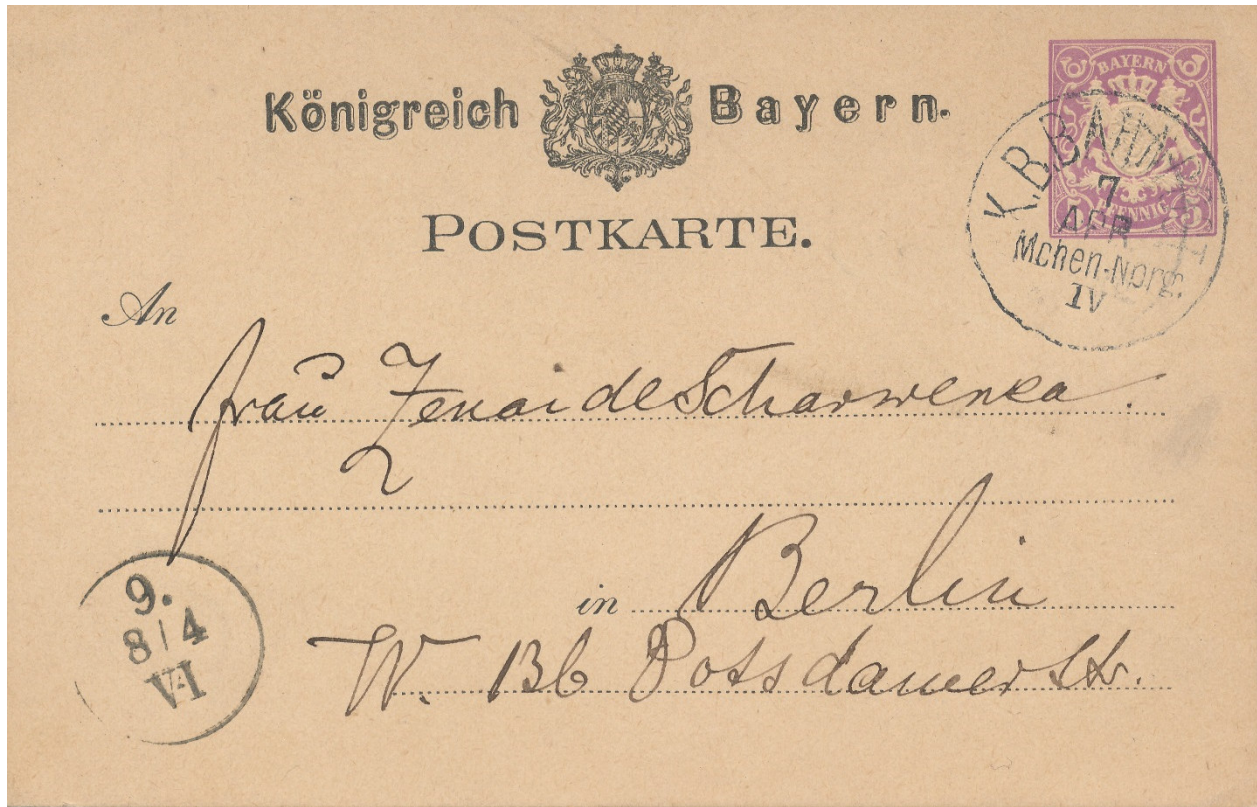 Königreich Bayern.
BAYERN
5 PFENNIG 5
K.B.BAHNPOST
7
APR
Mchen-Nbrg.
IV
POSTKARTE.
An
Frau Zenaide Scharwenka.
in Berlin
W. 136 Potsdamerstr.
9.
8/4
VI